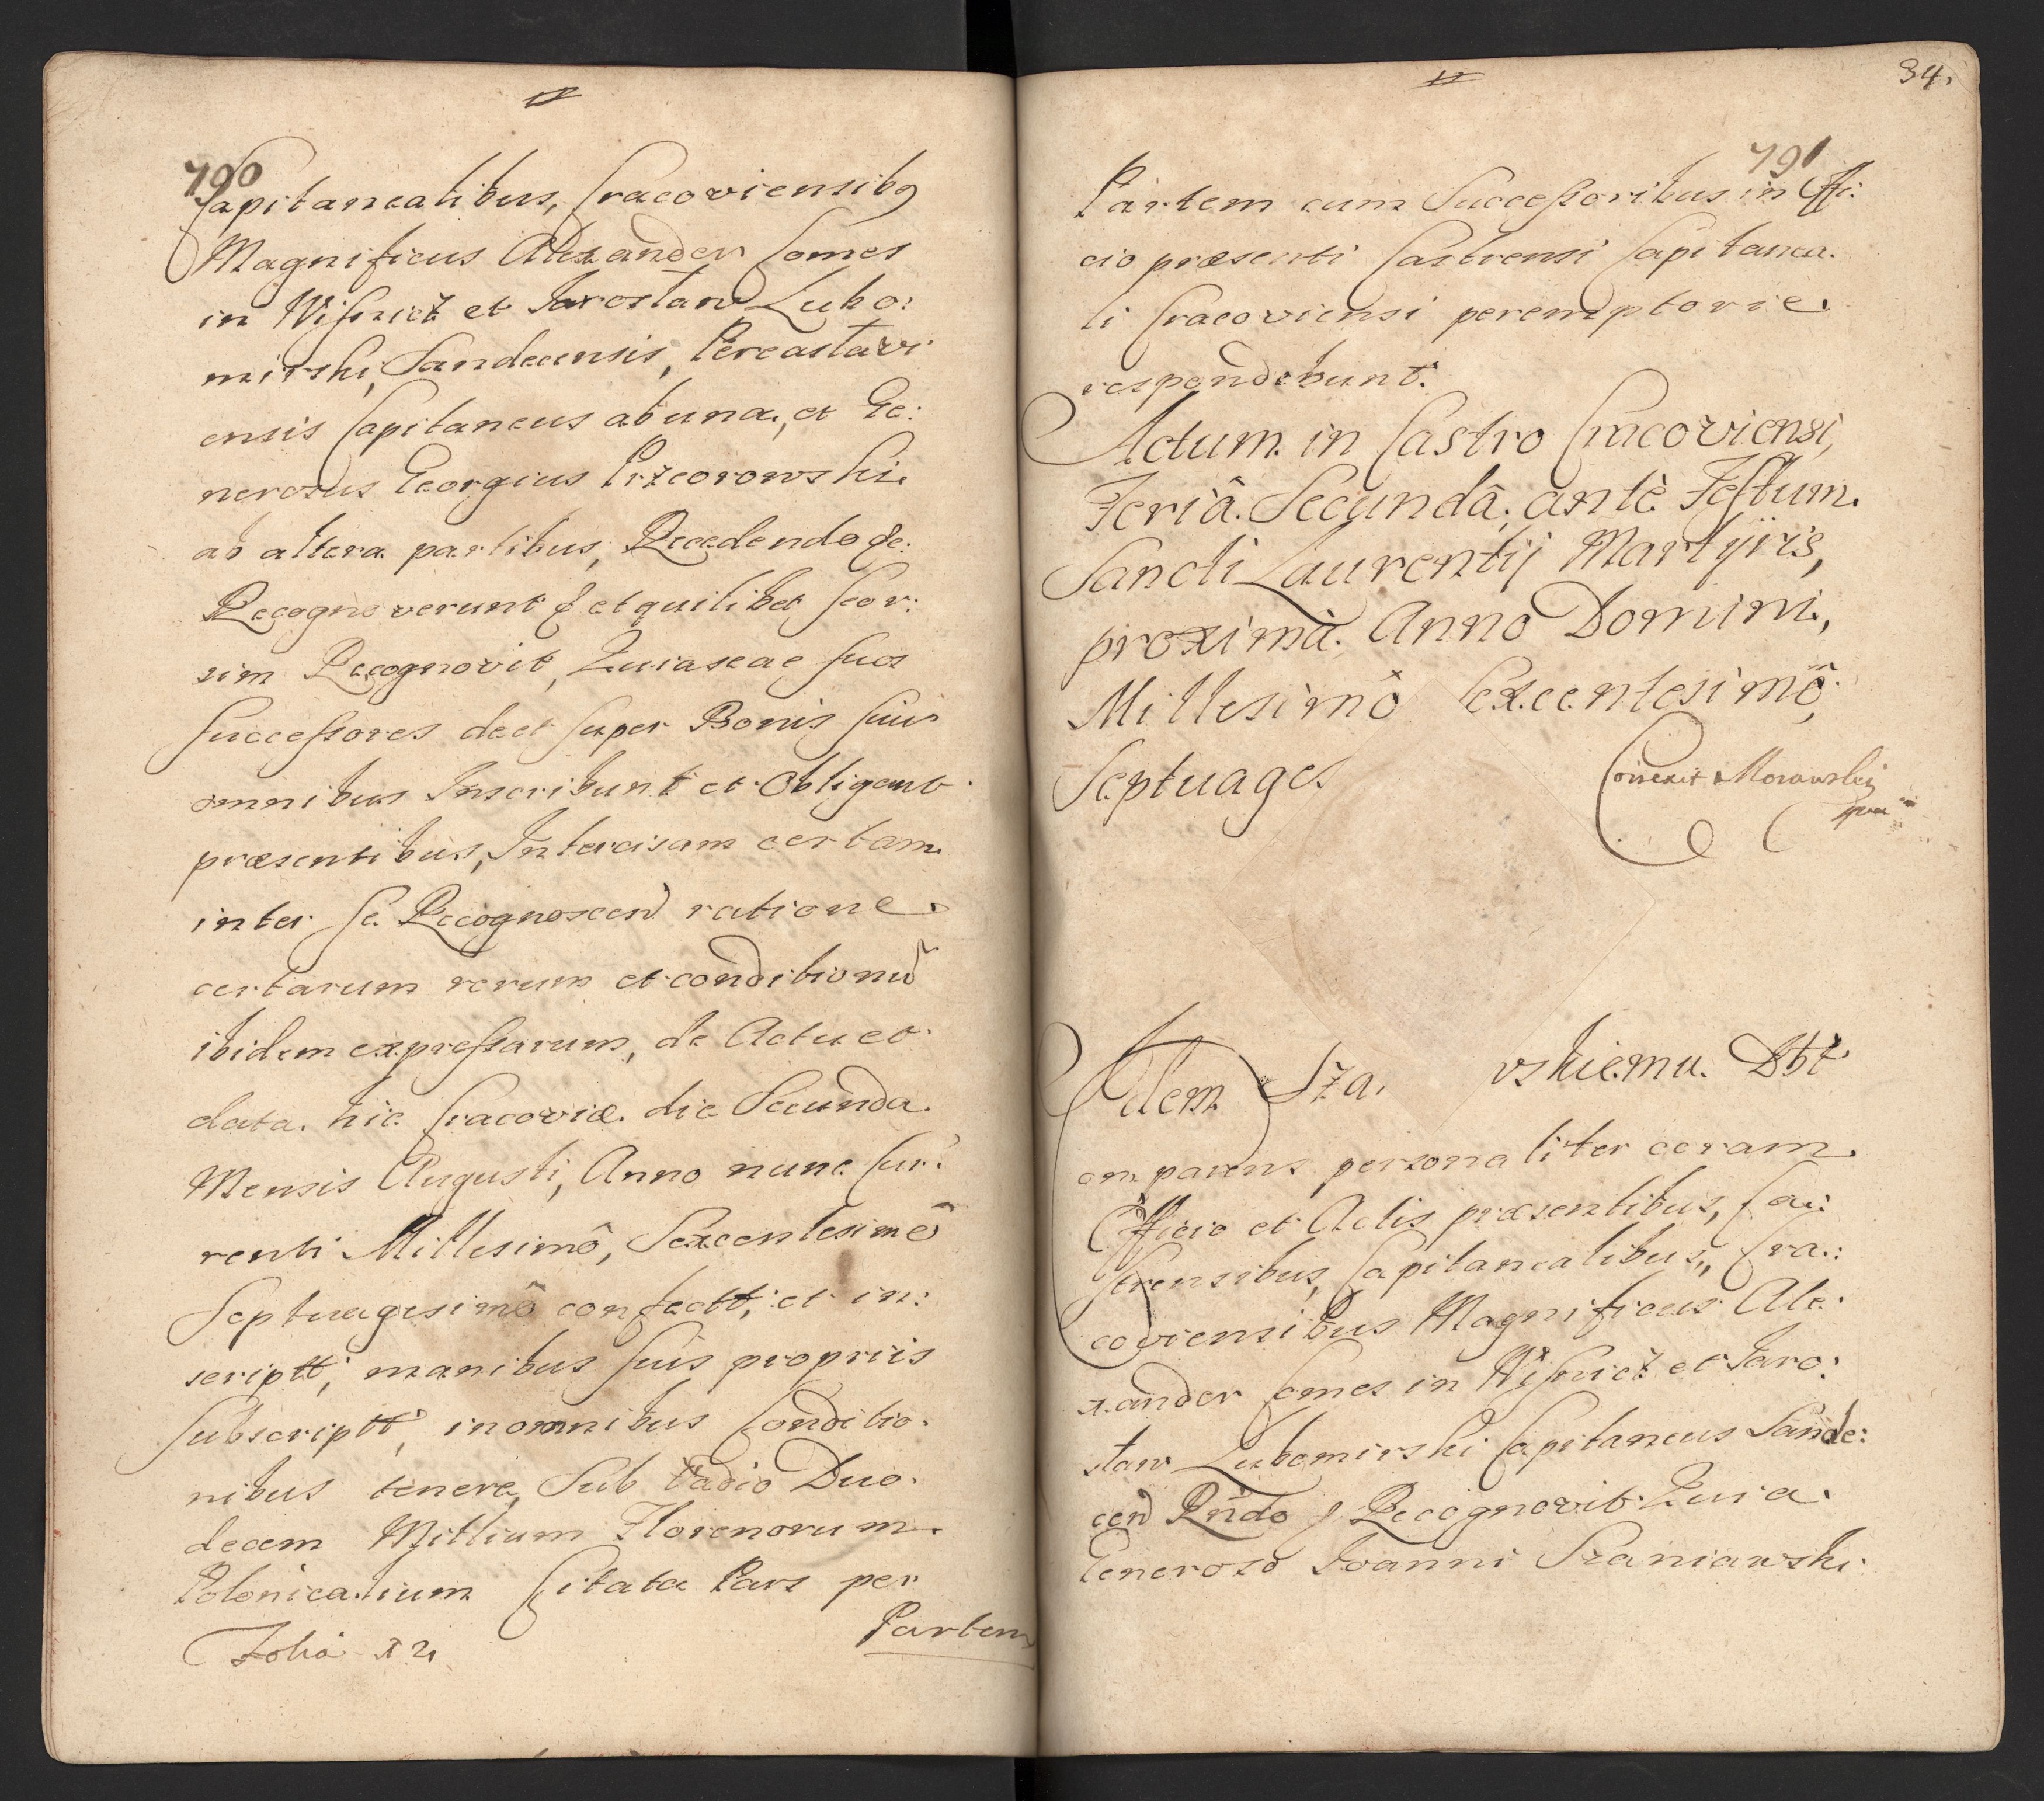 790
Capitanealibus, Cracoviensibq
Magnificus Alexander Comes
in Wisnicz et Jarostaw Lubo:
mirski, Sandecensis, Pereastavi
ensis Capitaneus ab una, et Ge:
nerosus Georgius Przeorowski.
ab altera partibus, Recedendo &c:
Recognoverunt & et quilibet seor:
sim Recognovit, Quia se ac suos
Successores de et super Bonis suis
omnibus Inscribunt et Obligant
præsentibus, Intercisam certam
inter se Recognoscend ratione
certarum rerum et conditionũ
ibidem expressarum, de Actu et
data. hic Cracoviæ. die Secunda.
Mensis Augusti, Anno nunc Cur:
renti Millesimô, Sexcentesimô
Septuagesimô confectt; et in:
scriptt; manibus suis propriis
subscriptt, in omnibus Conditio.
nibus tenere, Sub Vadio Duo.
decem Millium Florenorum.
Polonicalium Citata Pars per
Partem
Folia x 2,
34,
791
Partem cum Successoribus in Offi:
cio præsenti Castrensi Capitanea.
li Cracoviensi peremptorie.
respondebunt.
Actum. in Castro Cracoviensi,
Feriâ. Secundâ, antè Festum.
Sancti Laurentij Martÿris,
proximâ. Anno Domini,
Millesimô Sexcentesimô,
Septuages.
Correxit Morawski
Idem Sza. vskiemu. Dbt
omparens personaliter coram
Officio et Actis præsentibus, Ca:
strensibus, Capitanealibus,, Cra.:
coviensibus Magnificus Ale.
xander Comes in Wisnicz et Jaro:
staw Lubomirski Capitaneus Sande:
cen Rndo & Recognovit. Quia.
Generoso Joanni Szaniawski